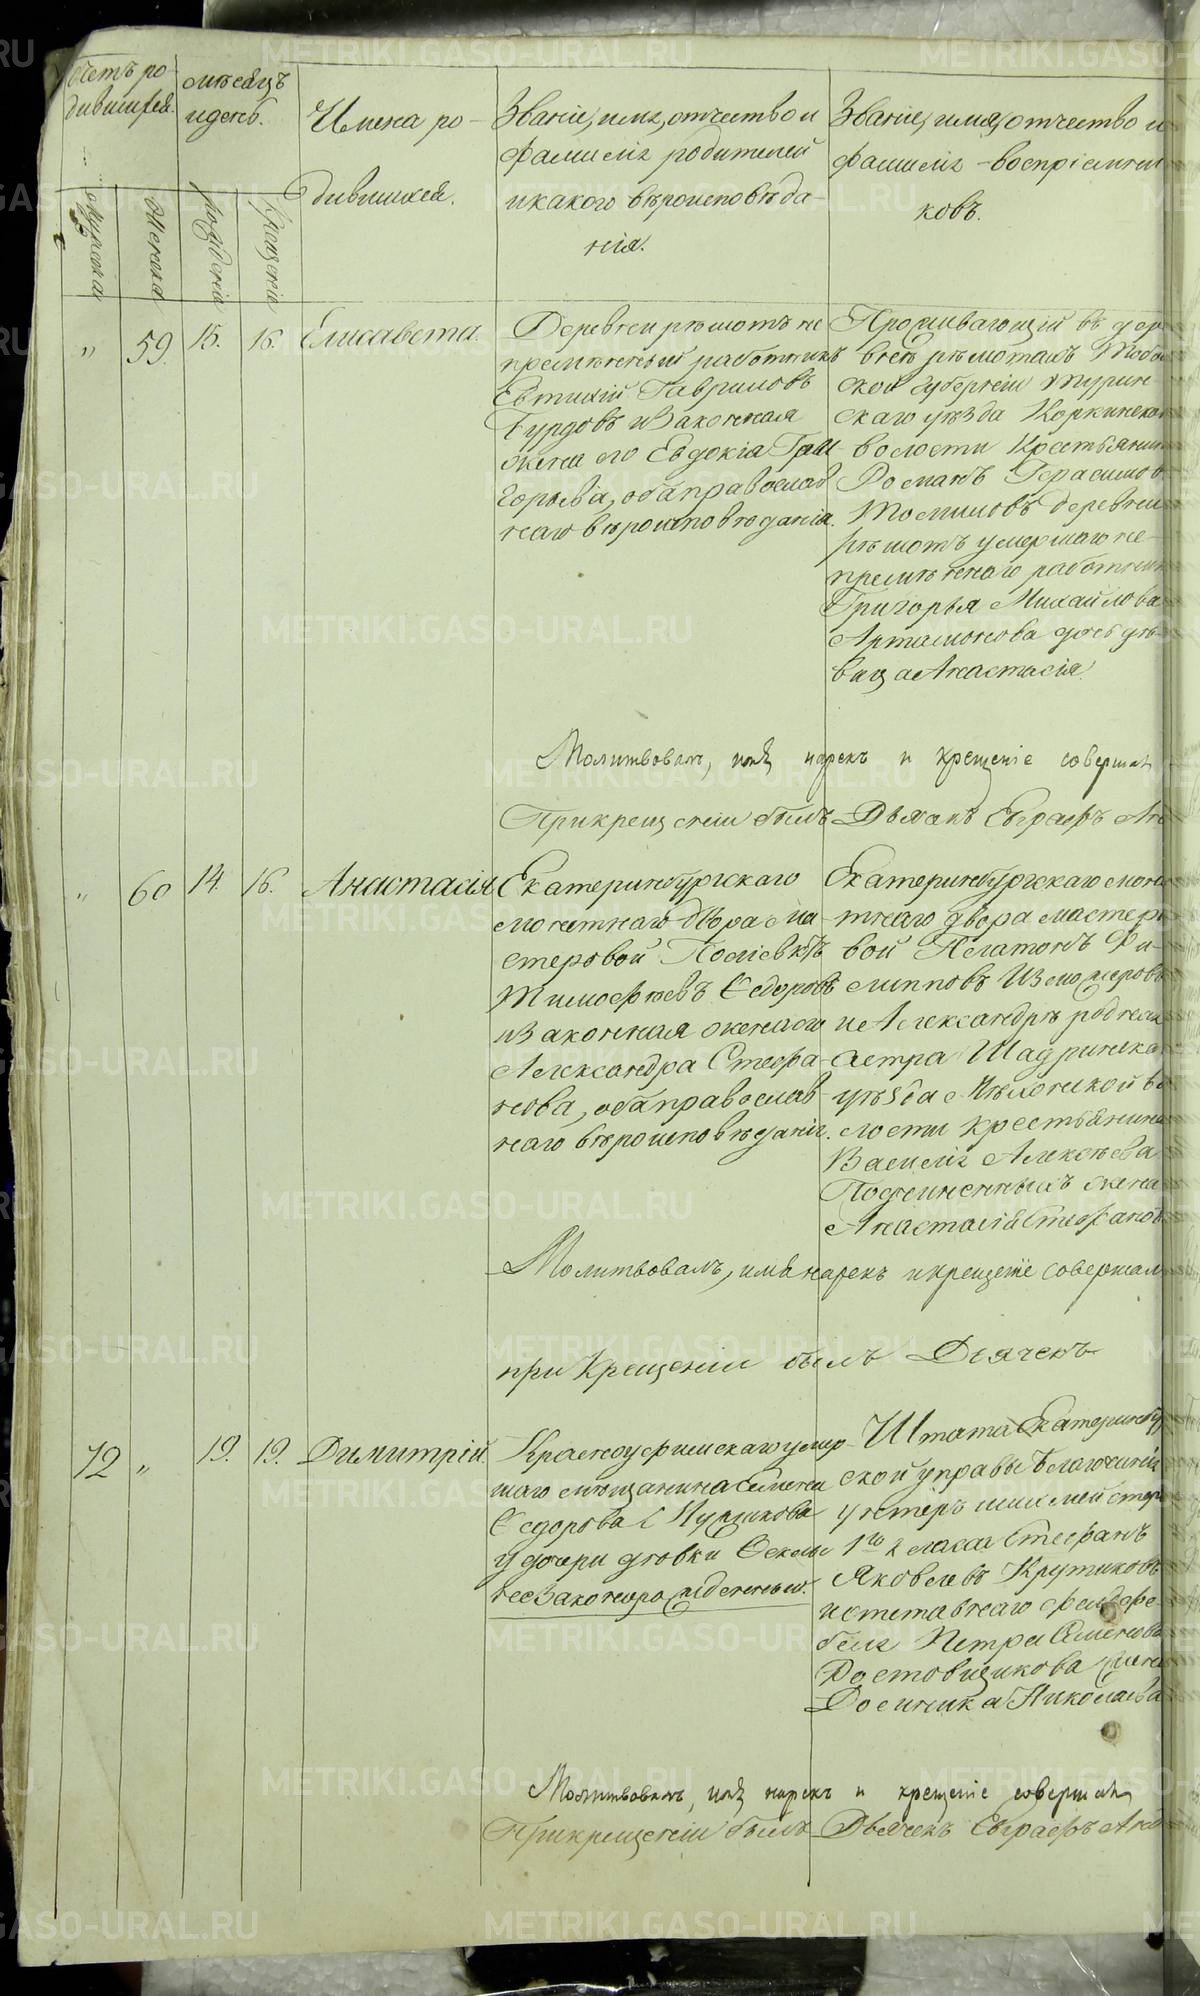 Счетъ ро-
дившихся.
мужска
женска
мѣсяцъ
и день.
рожденія
крещенія
Имена ро-
дившихся.
Званіе, имя, отчество и
фамилія родителей
и какого вѣроисповѣда-
нія.
Званіе, имя, отчество и
фамилія воспріемни
ковъ.
" 59. 15. 16. Елисавета.
Деревни рѣшотъ не
премѣнный работникъ
Евтихій Гавриловъ
Бурдовъ и законная
жена его Евдокія Гри
горьева, оба православ
наго вѣроисповѣданія.
Проживающій въ дер
внѣ рѣшотахъ Тобо
ской губерніи турин-
скаго уѣзда Коркинско
волости Крестьянин
Романъ Герасимов
Томиловъ деревни
рѣшотъ умершаго не-
премѣннаго работни
Григорья Михайлова
Артамонова дочь дѣ-
вица Анастасія.
Молитвовалъ, имя нарекъ и крещеніе совершал
При крещеніи былъ Дьячекъ Евграфъ
" 60 14. 16. Анастасія
Екатеринбургскаго
монетнаго двора ма
стеровой
Тимофѣевъ Ѳедоровъ
и законная жена его
Александра Стефа-
нова, оба православ-
наго вѣроисповѣданія.
Екатеринбургскаго моне
тнаго двора мастеро
вой Платонъ Фи-
липповъ Изможеровъ
и Александрѣ родная
сестра Шадринска
уѣзда Мѣхонской во
лости крестьянина
Василія Алексѣева
жена
Анастасія Стефанов
Молитвовалъ, имя нарекъ и крещеніе совершал
при крещеніи былъ Дьячекъ
72 " 19. 19. Димитрій.
Красноуфимскаго умер
шаго мѣщанина Семена
Ѳедорова
у дочери дѣвки Ѳеклы
незаконнорожденный.
Штата Екатеринбу
ской управы благочинія
унтеръ
1го класса Стефанъ
Яковлевъ Крутиковъ
и отставнаго фелдфе-
беля Петра Семенова
Ростовщикова жена
Доминика Николаева
Молитвовалъ, имя нарекъ и крещеніе совершал
При крещеніи былъ Дьячекъ Евграфъ
METRIKI.GASO-URAL.RU